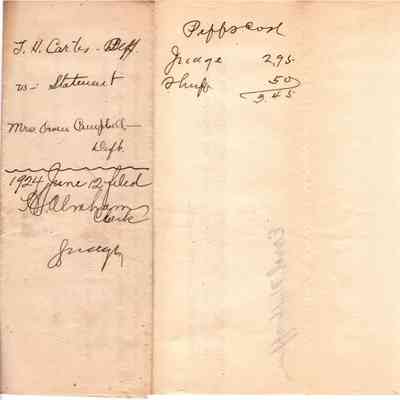 T. H. Carter - Plff
vs - Statement
Mrs. Owen Campbell -
Deft.
1924 June 12 filed
Abraham
Clerk
Judge
Plffs cost
Judge 2.95
Shuff 50
3.45